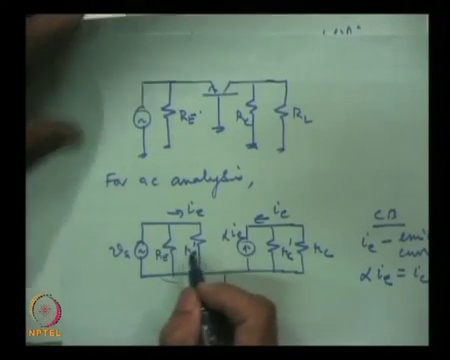 R_E
R_C
R_L
For ac analysis,
i_e
i_c
CB
v_s
R_E
αi_e
r_c'
r_c
i_e - emi
curr
αi_e = i_c
NPTEL